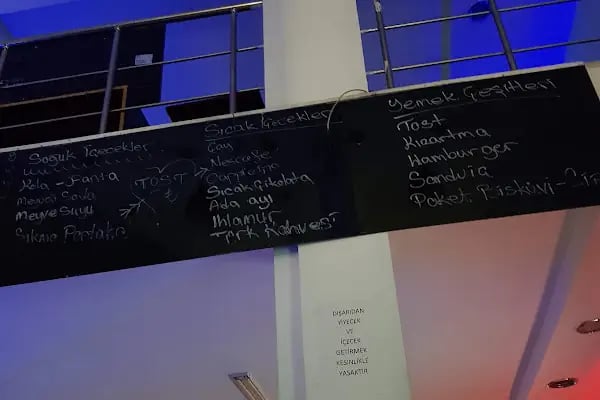 Soğuk İçecekler
Kola - Fanta
Meyva Soda
Meyve Suyu
Sıkma Portakal
TOST
Sıcak İçecekler
Çay
Nescafe
Sıcak Çikolata
Ada çayı
Ihlamur
Türk Kahvesi
Yemek Çeşitleri
Tost
Kızartma
Hamburger
Sandviç
Paket Bisküvi -
DIŞARIDAN
YİYECEK
VE
İÇECEK
GETİRMEK
KESİNLİKLE
YASAKTIR